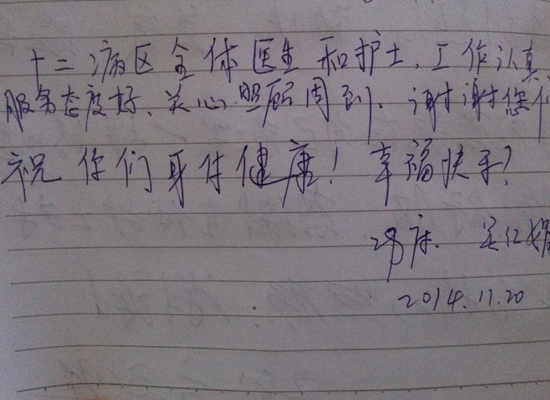 十二病区全体医生和护士,工作认真
服务态度好、关心照顾周到.谢谢您们
祝你们身体健康!幸福快乐?
29床. 吴红
2014.11.20